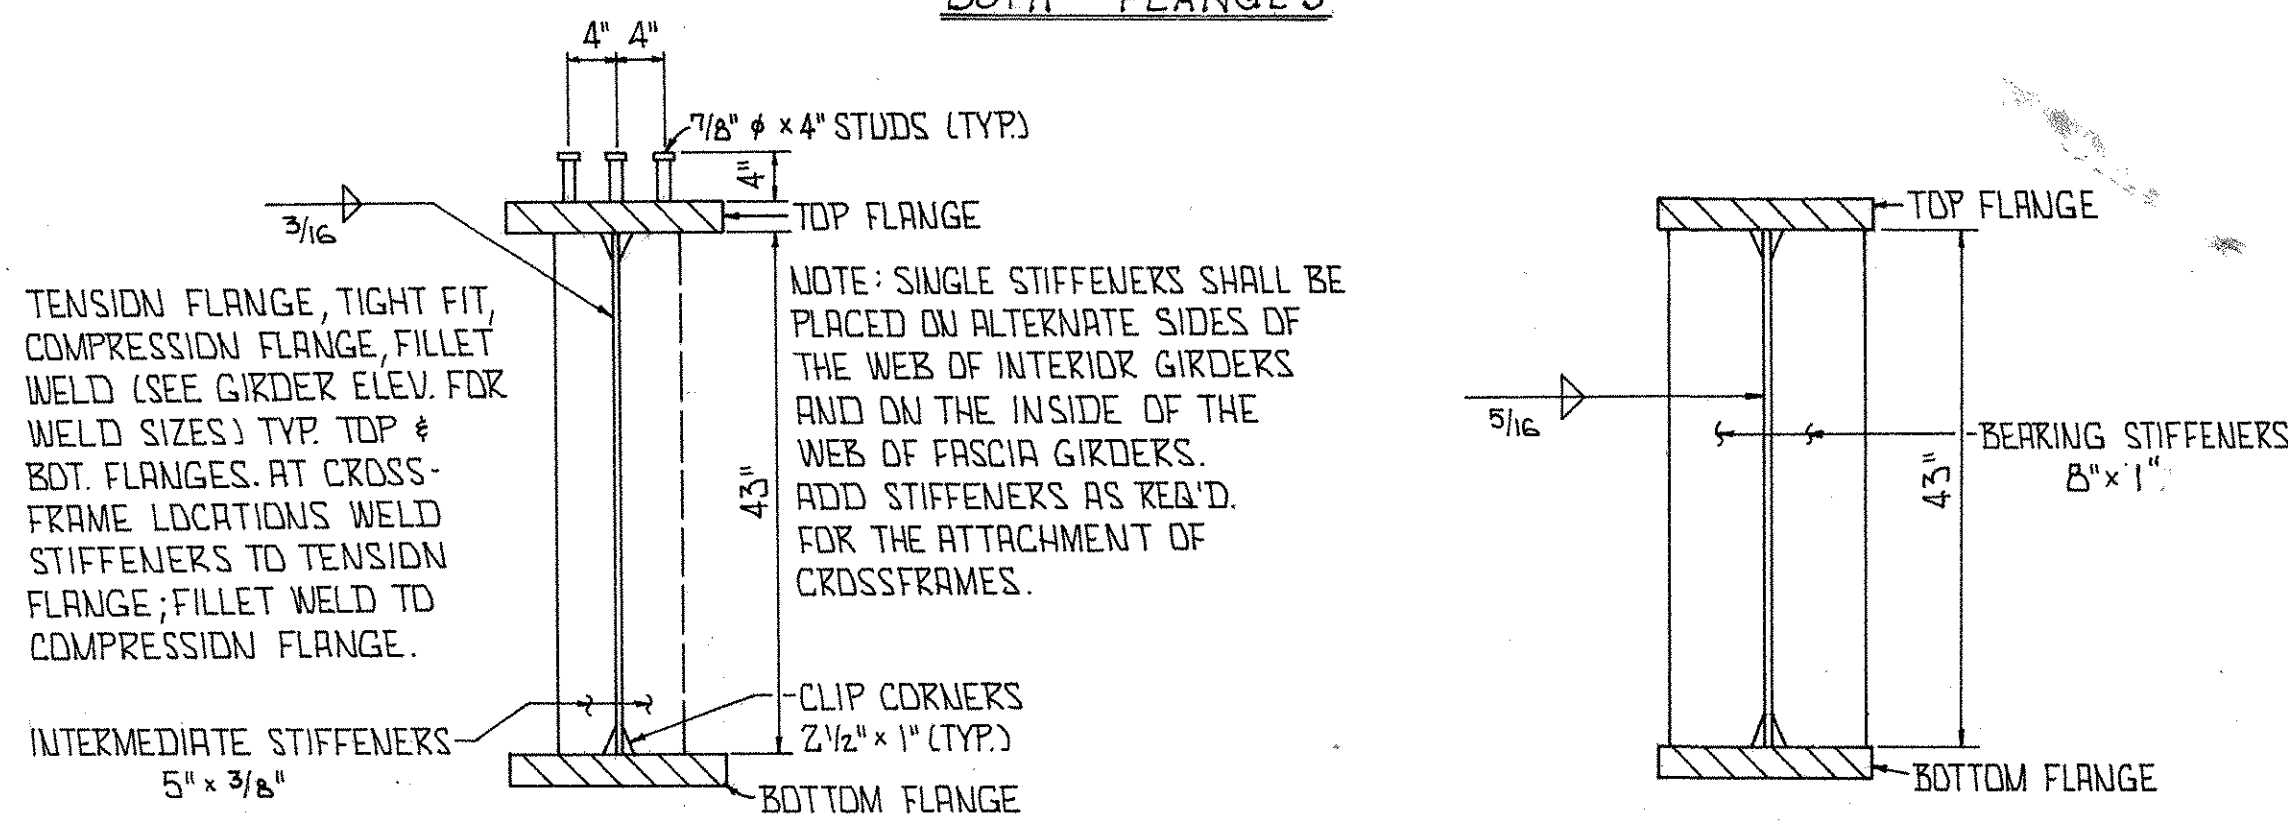 BOTH FLANGES
4" 4"
7/8" ϕ x 4" STUDS (TYP.)
4"
3/16
TOP FLANGE
TENSION FLANGE, TIGHT FIT,
COMPRESSION FLANGE, FILLET
WELD (SEE GIRDER ELEV. FOR
WELD SIZES) TYP. TOP &
BOT. FLANGES. AT CROSS-
FRAME LOCATIONS WELD
STIFFENERS TO TENSION
FLANGE; FILLET WELD TO
COMPRESSION FLANGE.
NOTE: SINGLE STIFFENERS SHALL BE
PLACED ON ALTERNATE SIDES OF
THE WEB OF INTERIOR GIRDERS
AND ON THE INSIDE OF THE
WEB OF FASCIA GIRDERS.
ADD STIFFENERS AS REQ'D.
FOR THE ATTACHMENT OF
CROSSFRAMES.
43"
CLIP CORNERS
2 1/2" x 1" (TYP.)
INTERMEDIATE STIFFENERS
5" x 3/8"
BOTTOM FLANGE
TOP FLANGE
5/16
BEARING STIFFENERS
8" x 1"
43"
BOTTOM FLANGE